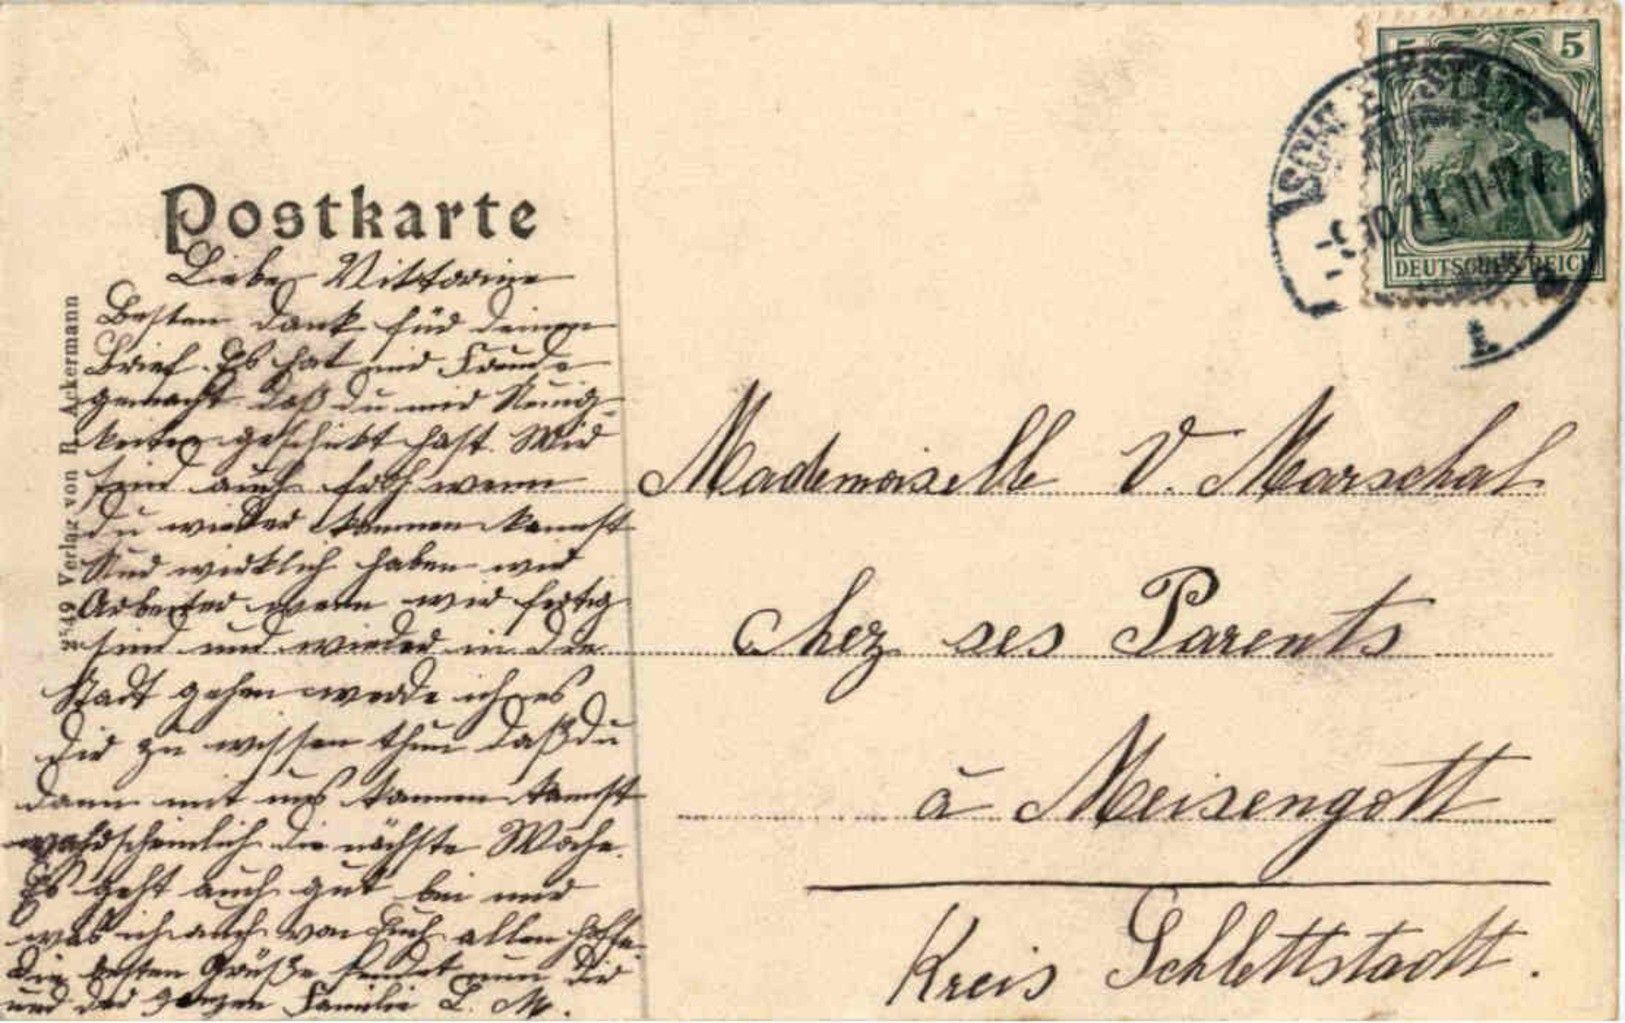 Postkarte
Liebe Viktorine
Besten Dank für deinen
Brief. Es hat mir Freude
gemacht daß du mir Neuig-
keiten geschickt hast. Wir
sind auch froh wenn
du wieder kommen kannst
Nur wirklich haben wir
Arbeiter wenn wir fertig
sind und wieder in die
Stadt gehen werde ich es
dir zu wissen thun daß du
dann mit uns kommen kannst
wahrscheinlich die nächste Woche.
Es geht auch gut bei mir
was ich auch von Euch allen hoffe.
Die besten Grüße sendet nun dir
und der ganzen Familie L. M.
2549 Verlag von R. Ackermann
5 5
DEUTSCHES REICH
10.11.11-12V.
Mademoiselle V. Marschal
chez ses Parents
à Meisengott
Kreis Schlettstadt.